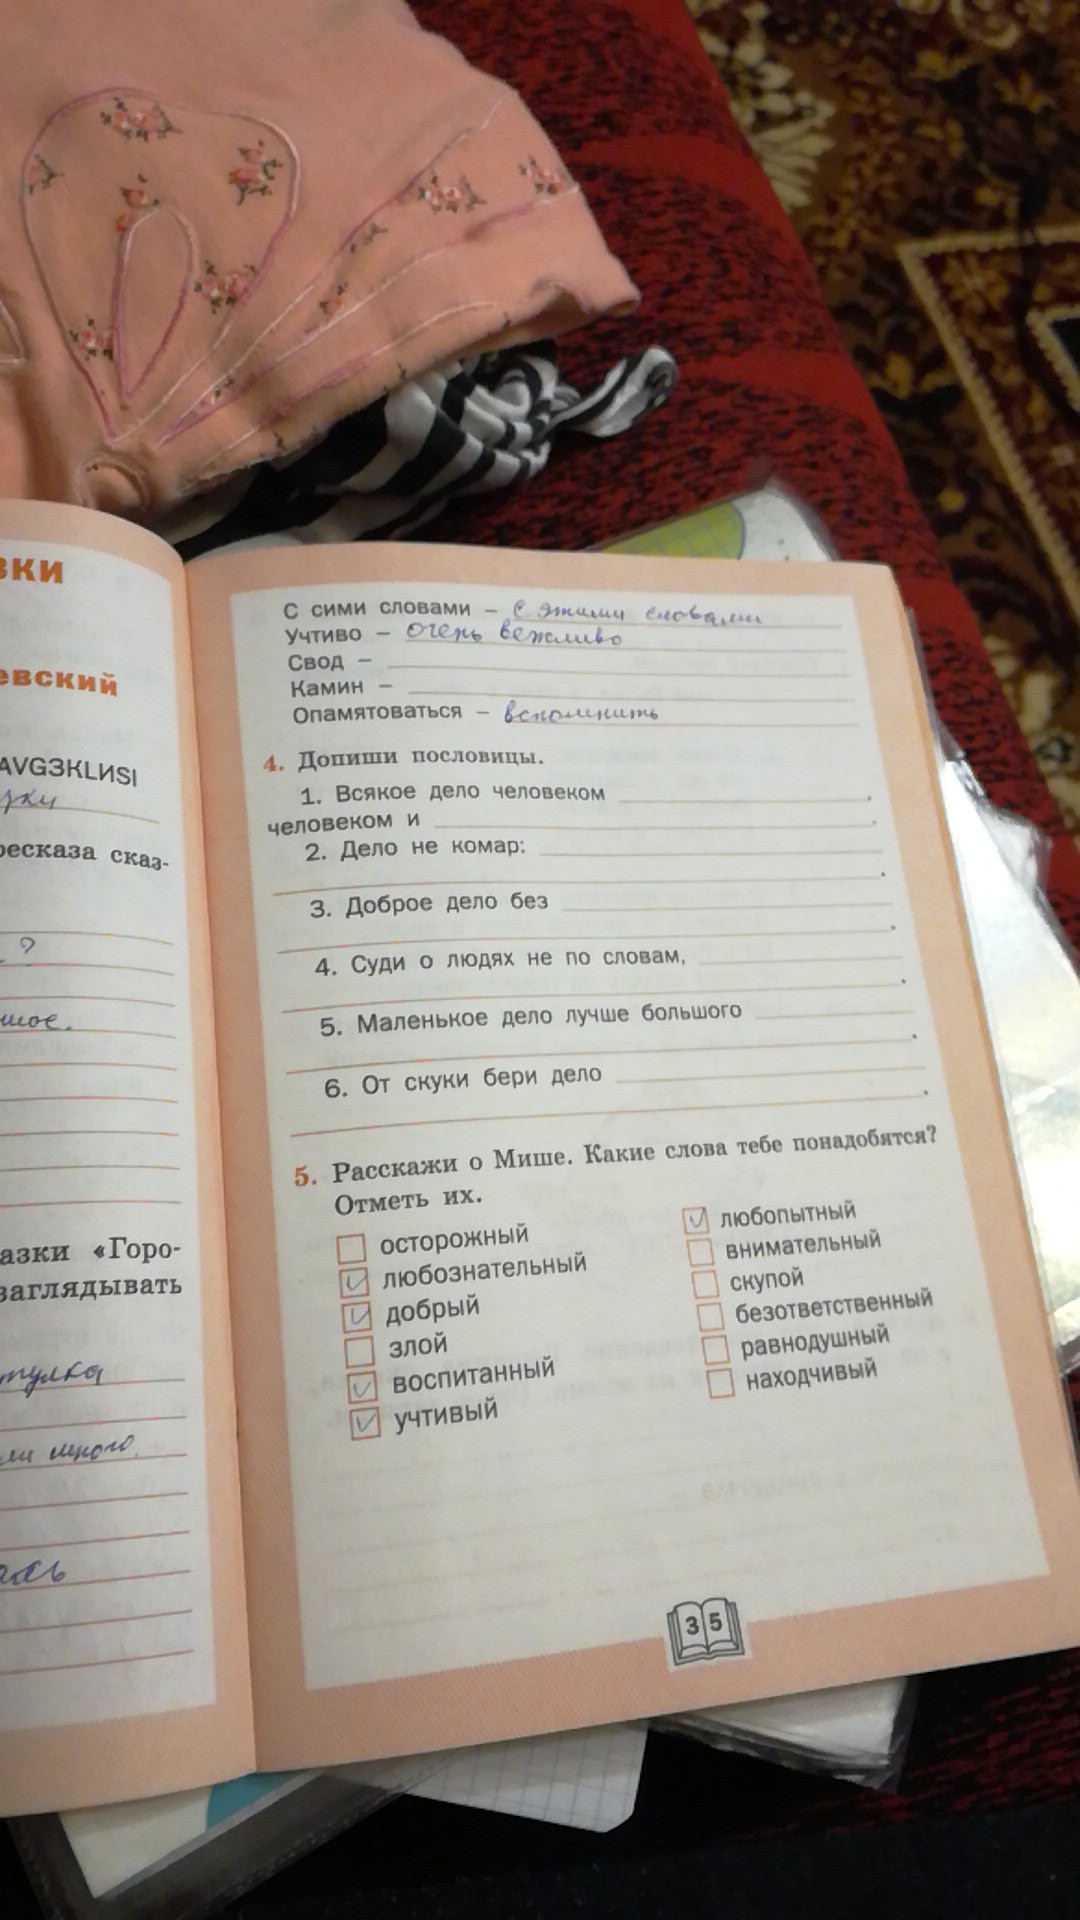 зки
евский
AVGЗКLИSI
зки
ресказа сказ-
?
шое.
азки «Горо-
заглядывать
тулка
ли много.
ась
С сими словами – с этими словами
Учтиво – очень вежливо
Свод –
Камин –
Опамятоваться – вспомнить
4. Допиши пословицы.
1. Всякое дело человеком ,
человеком и .
2. Дело не комар:
.
3. Доброе дело без
.
4. Суди о людях не по словам,
.
5. Маленькое дело лучше большого
.
6. От скуки бери дело
.
5. Расскажи о Мише. Какие слова тебе понадобятся?
Отметь их.
осторожный
любознательный
добрый
злой
воспитанный
учтивый
любопытный
внимательный
скупой
безответственный
равнодушный
находчивый
35